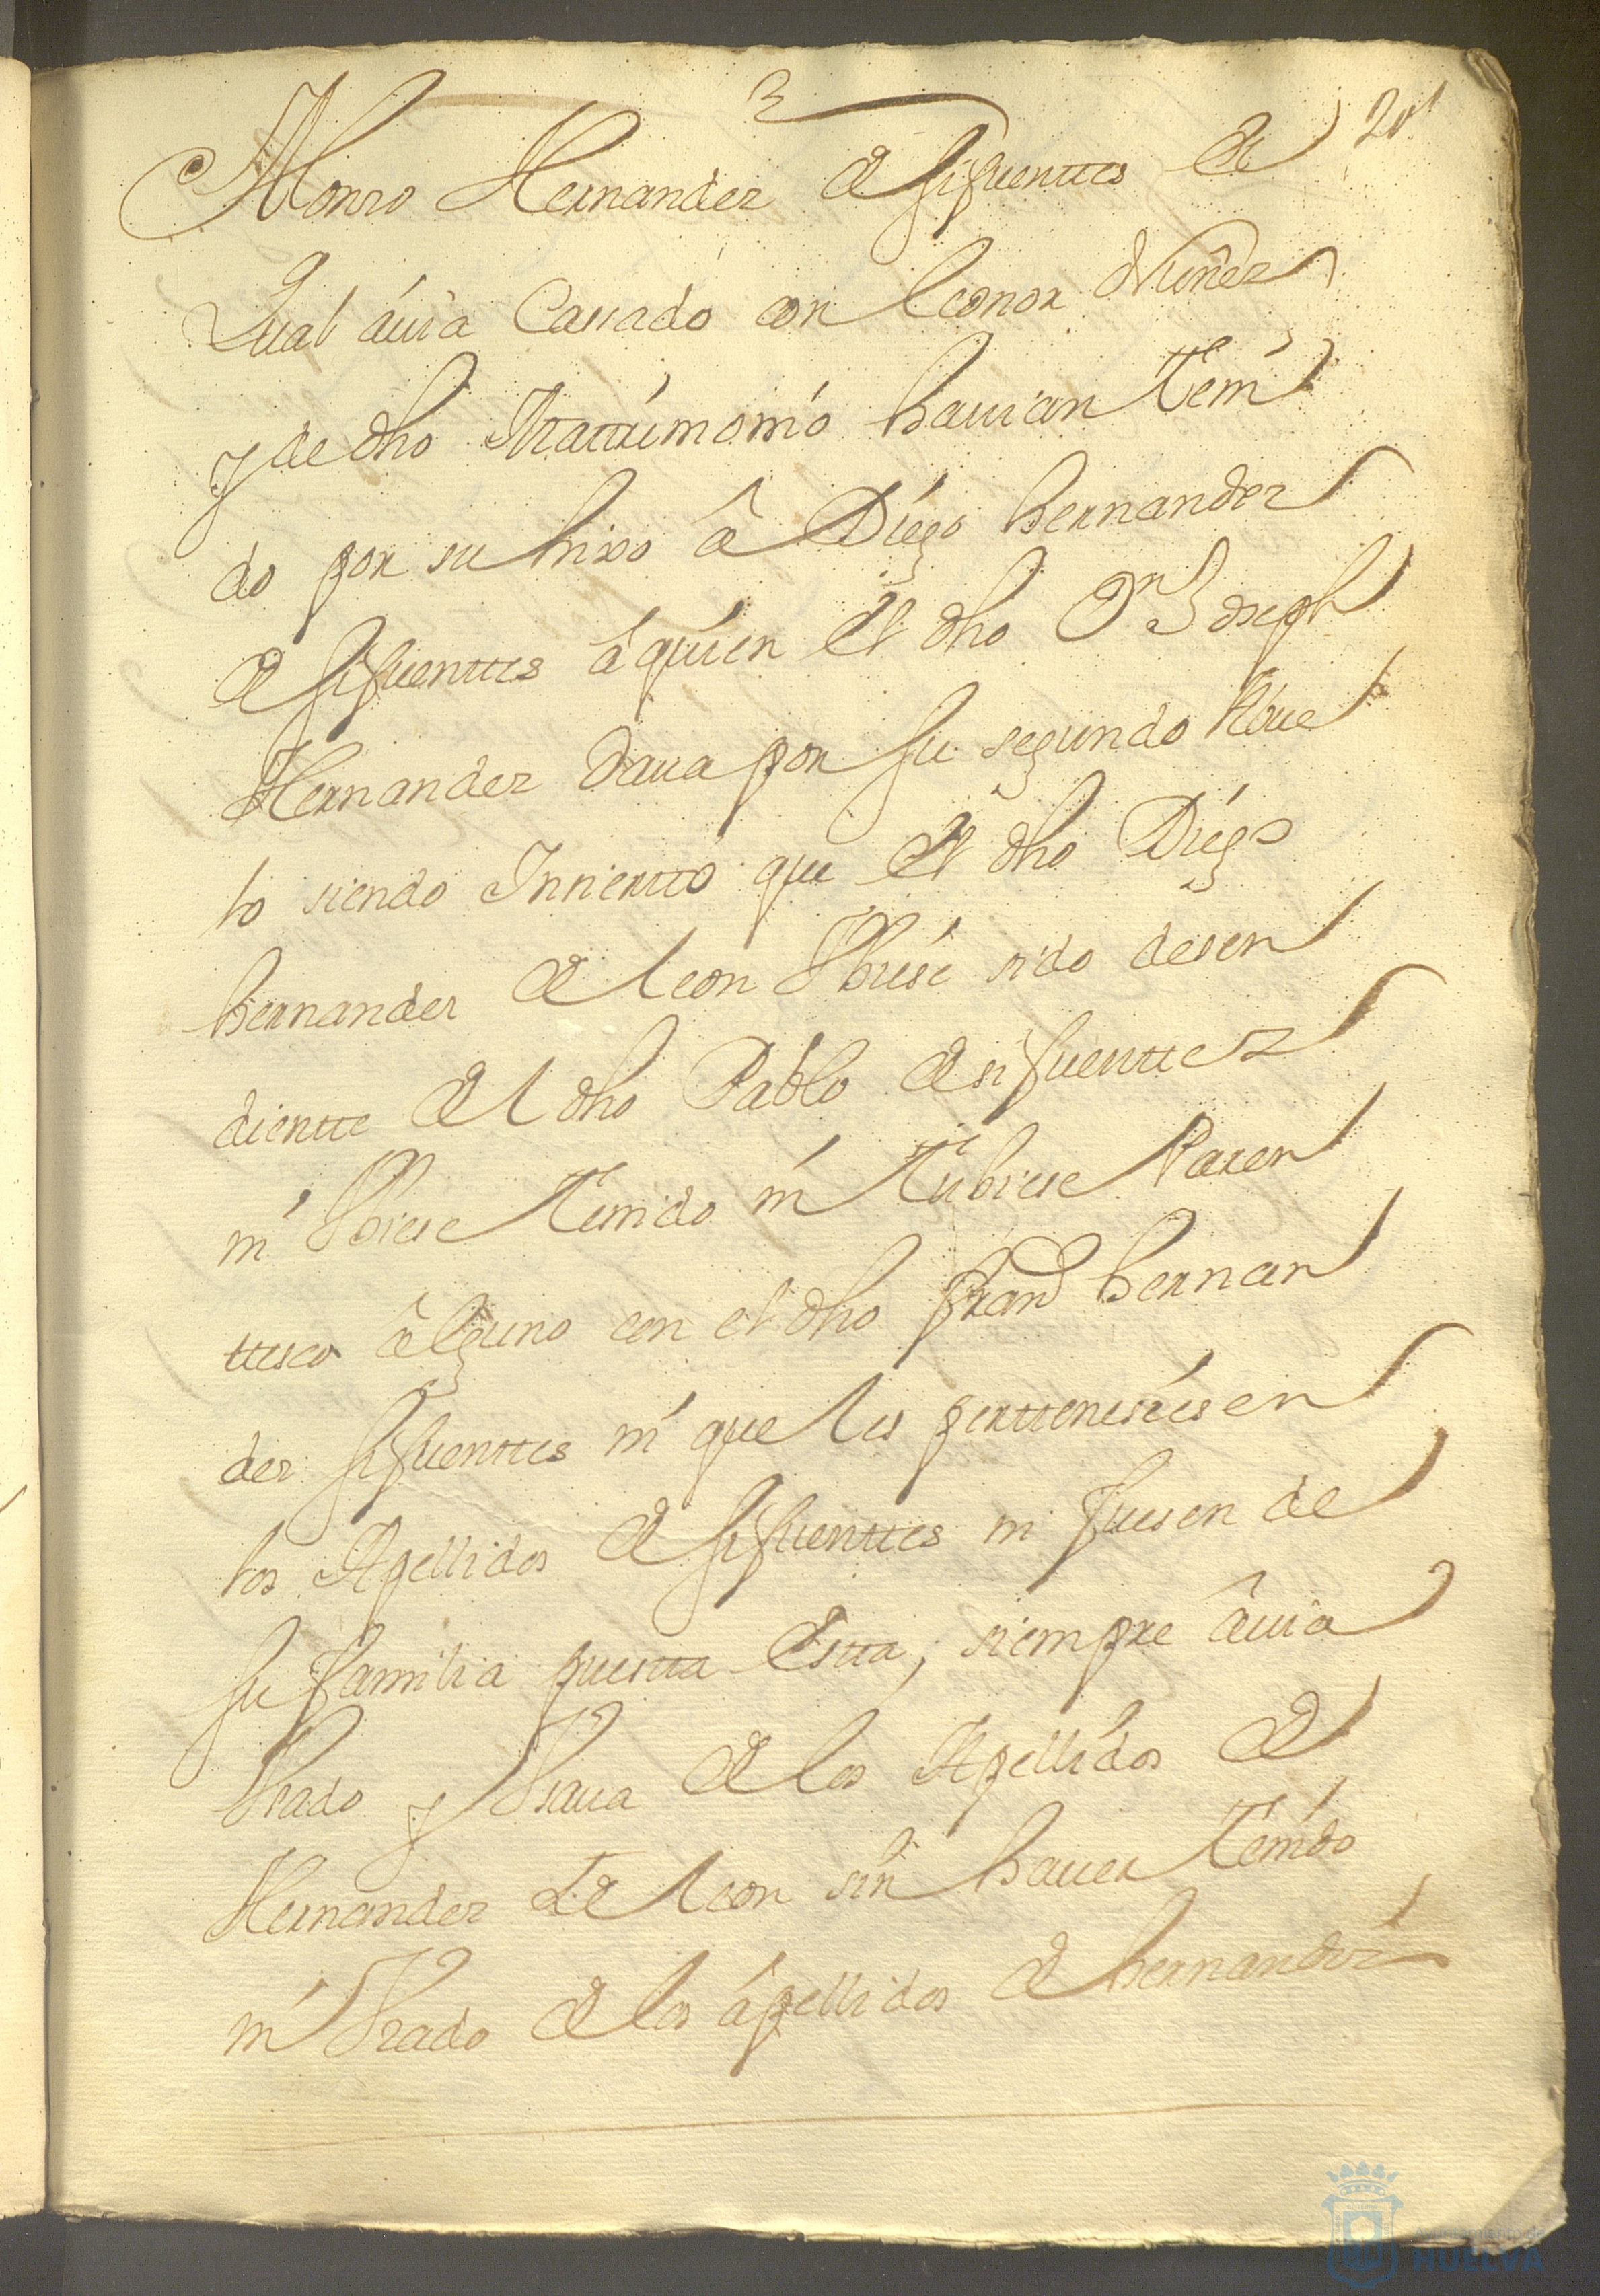 201
Alonso Hernandez de sifuenttes el
Qual avia Cassado con leonor Nuñez
y de dho Mattrimonio havian teni
do por su hixo â Diego hernandez
de sifuenttes â quien el dho Dn Joseph
Hernandez dava por su segundo Abue
lo siendo Insiertto que el dho Diego
hernandez de leon Vbiese sido desen
diente del dho Pablo de sifuenttez
ni Vbiese tenido ni tubiese Paren
ttesco âlguno con el dho fran.co hernan
dez sifuenttes ni que les perttenesiesen
los Apellidos de sifuenttes ni fuesen de
su familia puestta estta, siempre âvia
Vsado y Vsava de los Apellidos de
Hernandez de leon sin haver tenido
ni Vsado de los apellidos de hernandez
HUELVA